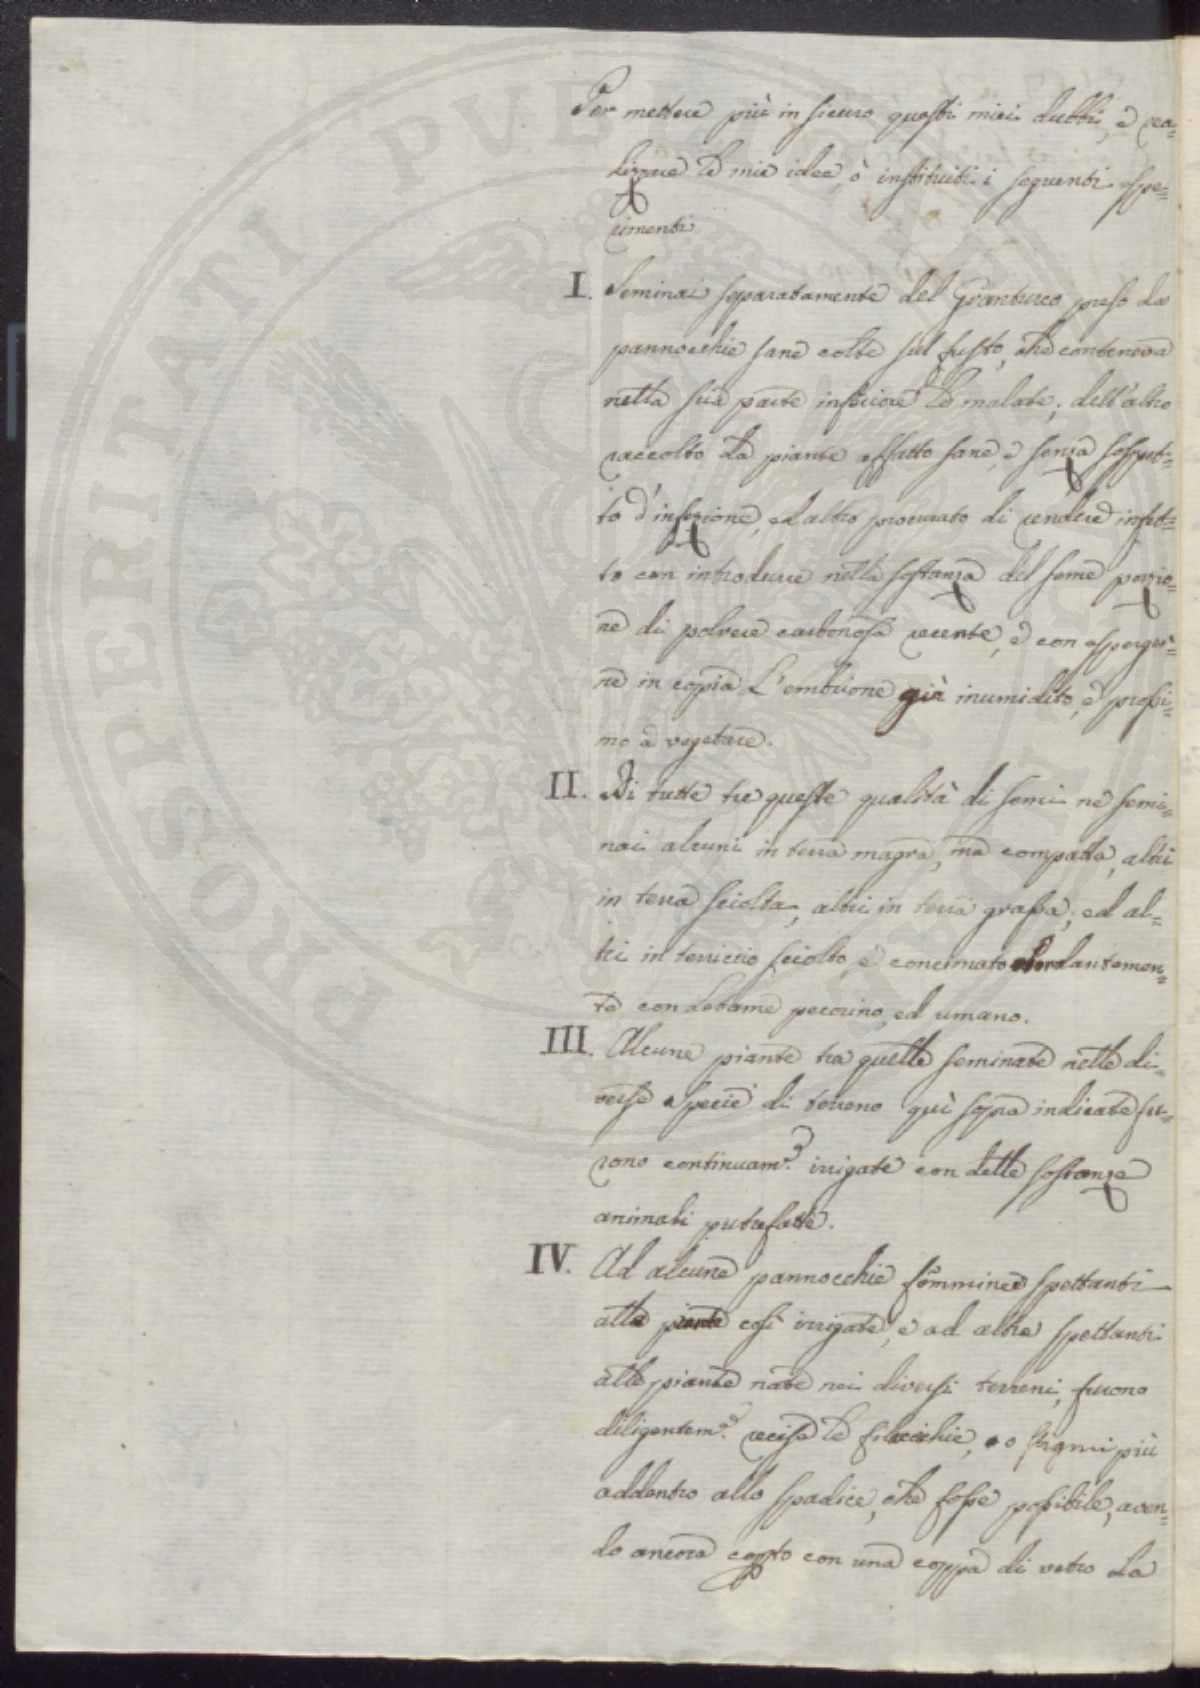 Per mettere più in sicuro questi miei dubbi, e rea=
lizzare le mie idee, ò instituiti i seguenti espe=
rimenti
I. Seminai separatamente del Granturco preso da
pannocchie sane colte sul fusto, che conteneva
nella sua parte inferiore le malate; dell'altro
raccolto da piante affatto sane, e senza sospet=
to d'infezione, ed altro procurato di rendere infet=
to con introdurre nella sostanza del seme porzio=
ne di polvere carbonosa recente, e con asperger=
ne in copia l'embrione già inumidito, e prossi=
mo a vegetare.
II. Di tutte tre queste qualità di semi ne semi=
nai alcuni in terra magra, ma compatta, altri
in terra sciolta, altri in terra grassa; ed al=
tri in terriccio sciolto, e concimato abbondantemen=
te con letame pecorino, ed umano.
III. Alcune piante tra quelle seminate nelle di=
verse specie di terreno quì sopra indicate fu=
rono continuam.e irrigate con delle sostanze
animali putrefatte.
IV. Ad alcune pannocchie femminee spettanti
alle piante così irrigate, e ad altre spettanti
alle piante nate nei diversi terreni, furono
diligentem.e recise le filaccichie, o stigmi più
addentro allo spadice, che fosse possibile, aven=
do ancora coperto con una coppa di vetro la
PROSPERITATI PUBLICAE